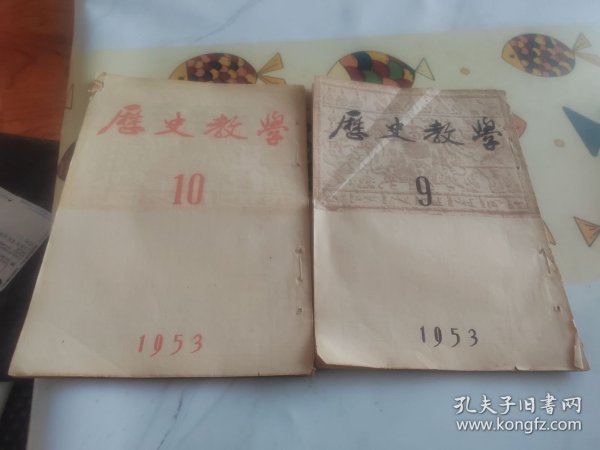 歷史教學
10
1953
歷史教學
9
1953
孔夫子旧書网
www.kongfz.com